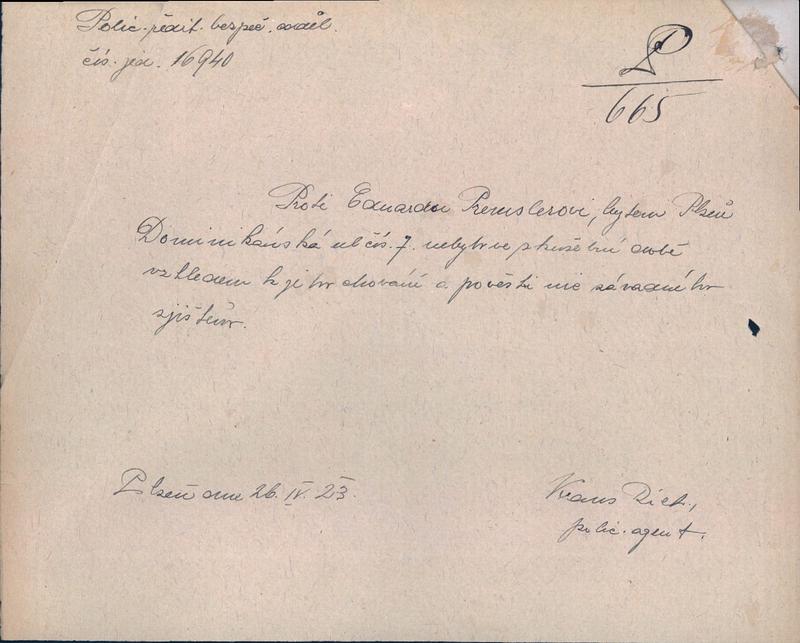 Polic. ředit. bezpeč. odděl.
čís. jed. 16940
P
665
Proti Eduardu Premslerovi, bytem Plzeň
Dominikánská ul čís. 7. nebylo ve zkušební době
vzhledem k jeho chování a pověsti nic závadného
zjištěno.
Plzeň dne 26. IV. 23.
Kraus Rich.,
polic. agent.